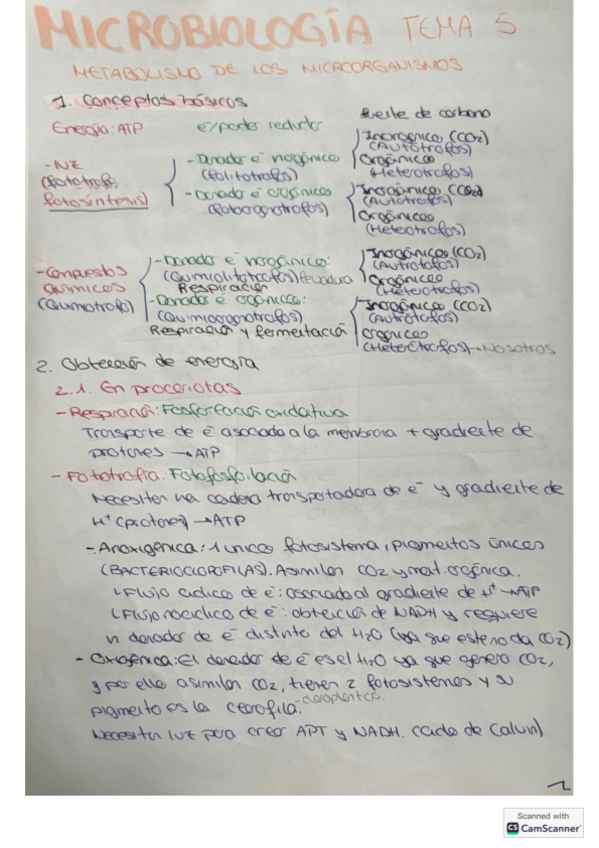 MICROBIOLOGÍA TEMA 5
METABOLISMO DE LOS MICROORGANISMOS
1. Conceptos básicos
Energía: ATP
e⁻/poder reductor
Fuente de carbono
- Luz
(fototrofo,
fotosíntesis)
- Donador e⁻ inorgánico
(Fotolitotrofos)
- Donador e⁻ orgánicos
(Fotoorganotrofos)
Inorgánico (CO₂)
(Autótrofos)
Orgánico
(Heterotrofos)
Inorgánico (CO₂)
(Autótrofos)
Orgánicos
(Heterotrofos)
- Compuestos
químicos
(Quimiotrofo)
- Donador e⁻ inorgánico:
(Quimiolitotrofos) levadura
Respiración
- Donador e⁻ orgánico:
(Quimioorganotrofos)
Respiración y fermentación
Inorgánicos (CO₂)
(Autrótofos)
Orgánicos
(Heterótrofos)
Inorgánicos (CO₂)
(Autrótofos)
Orgánicos
(Heterótrofos) → Nosotros
2. Obtención de energía
2.1. En procariotas
- Respiración: Fosforilación oxidativa
Transporte de e⁻ asociado a la membrana + gradiente de
protones → ATP
- Fototrofia: Fotofosfilación
Necesitan una cadena transportadora de e⁻ y gradiente de
H⁺ (protones) → ATP
- Anoxigénica: 1 único fotosistema, pigmentos únicos
(BACTERIOCLOROFILAS). Asimilan CO₂ y mat. orgánica.
↳ Flujo cíclico de e⁻: asociado al gradiente de H⁺ → ATP
↳ Flujo no cíclico de e⁻: obtención de NADH y requiere
un donador de e⁻ distinto del H₂O (ya que este no da CO₂)
- Oxigénica: El donador de e⁻ es el H₂O ya que genera CO₂,
y por ello asimilan CO₂, tienen 2 fotosistemas y su
pigmento es la clorofila.
Necesitan luz para crear APT y NADH. (ciclo de Calvin)
1
Scanned with
CS CamScanner